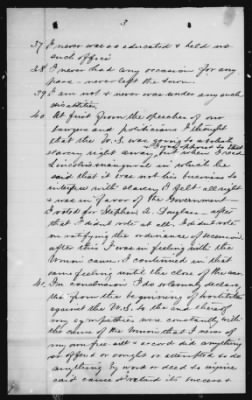 3
37 I never was so educated & held no
such office
38 I never had any occasion for any
pass - never left the town.
39 I am not & never was under any such
disabilities
40 At first from the speeches of our
lawyers and politicians I thought
that the U.S. was going to abolish
slavery right away, but when I read
Lincolns inaugural in which he
said that it was not his business to
interfere with slavery I felt all right
& was in favor of the Government
I voted for Stephen A. Douglas - after
that I didnt vote at all, I didnt vote
on ratifying the ordinance of secession
after this I was in feeling with the
Union cause. I continued in that
same feeling until the close of the war.
41 In conclusion I do solemnly declare
that from the beginning of hostilities
against the U.S. to the end thereof
my sympathies were constantly with
the cause of the Union that I never of
my own free will & accord did anything
or offered or sought or attempted to do
anything by word or deed to injure
said cause or retard its success &